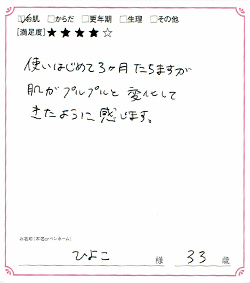 ☑お肌 □からだ □更年期 □生理 □その他
[満足度]★★★★☆
使いはじめて3ヶ月たちますが
肌がプルプルと変化して
きたように感じます。
お名前(匿名かペンネーム)
ひよこ 様 33 歳